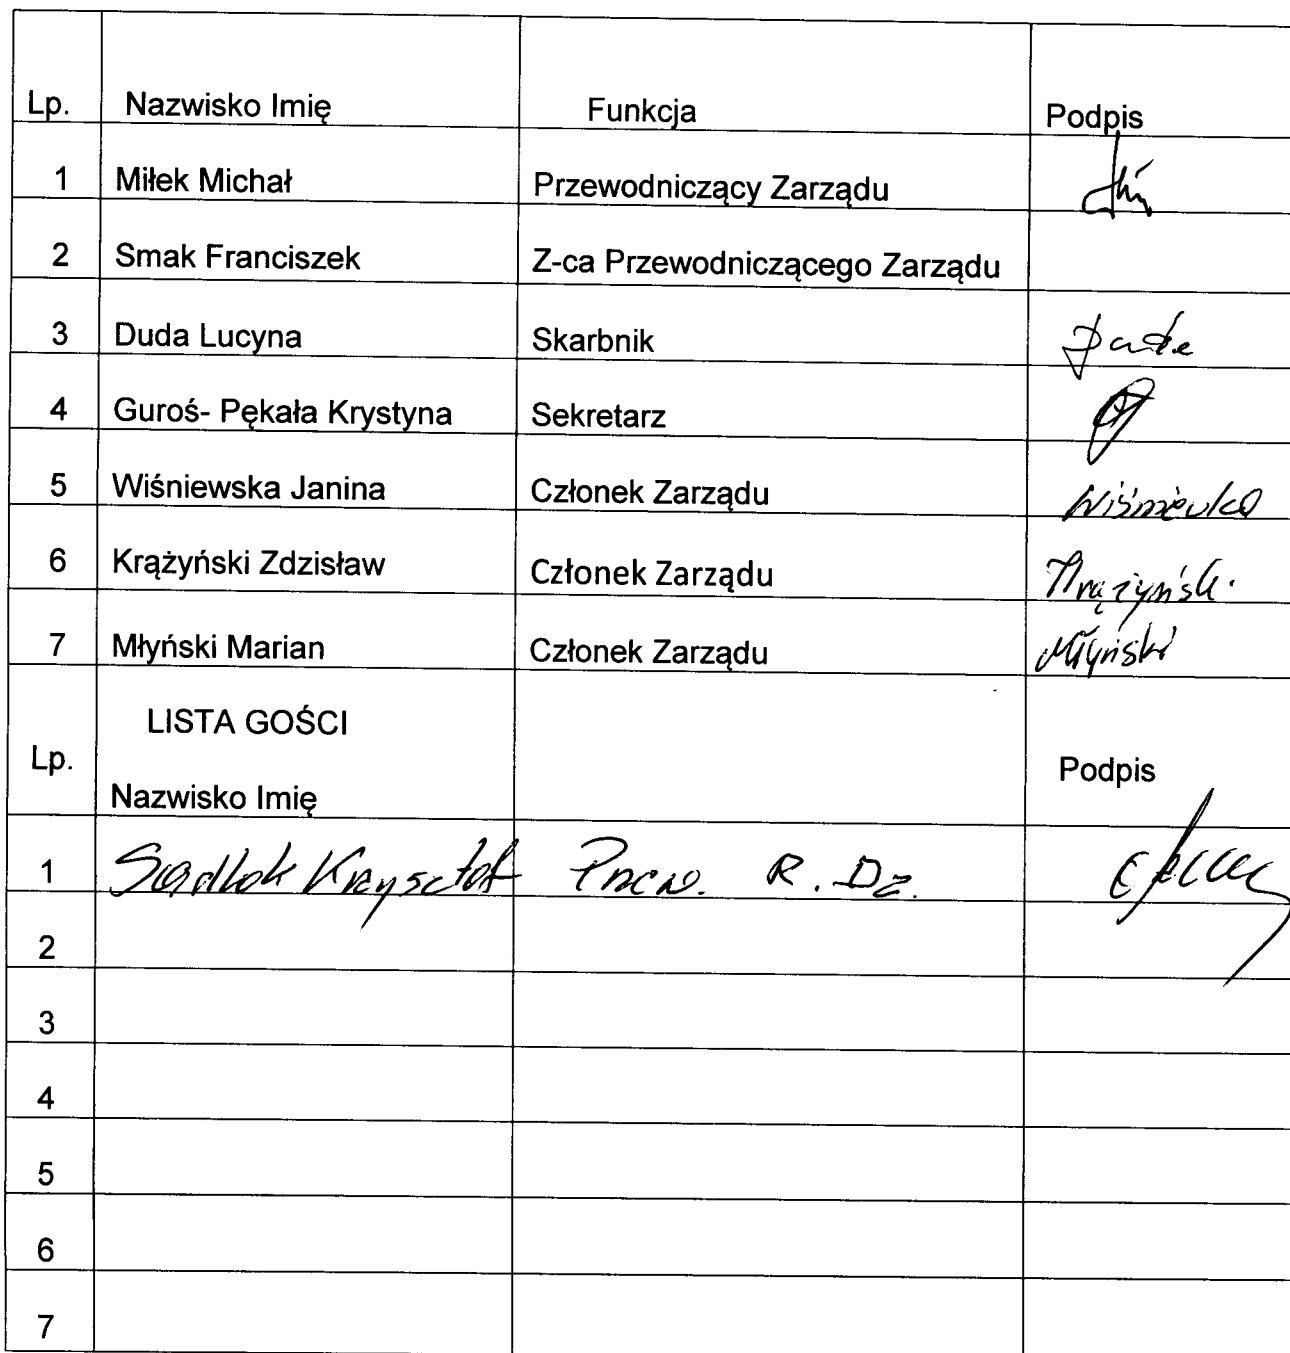 Lp. Nazwisko Imię Funkcja Podpis
1 Miłek Michał Przewodniczący Zarządu
2 Smak Franciszek Z-ca Przewodniczącego Zarządu
3 Duda Lucyna Skarbnik Duda
4 Guroś- Pękała Krystyna Sekretarz
5 Wiśniewska Janina Członek Zarządu Wiśniewska
6 Krążyński Zdzisław Członek Zarządu Krążyński
7 Młyński Marian Członek Zarządu Młyński
LISTA GOŚCI
Lp. Podpis
Nazwisko Imię
1 Sadlok Krzysztof R. Dz.
2
3
4
5
6
7